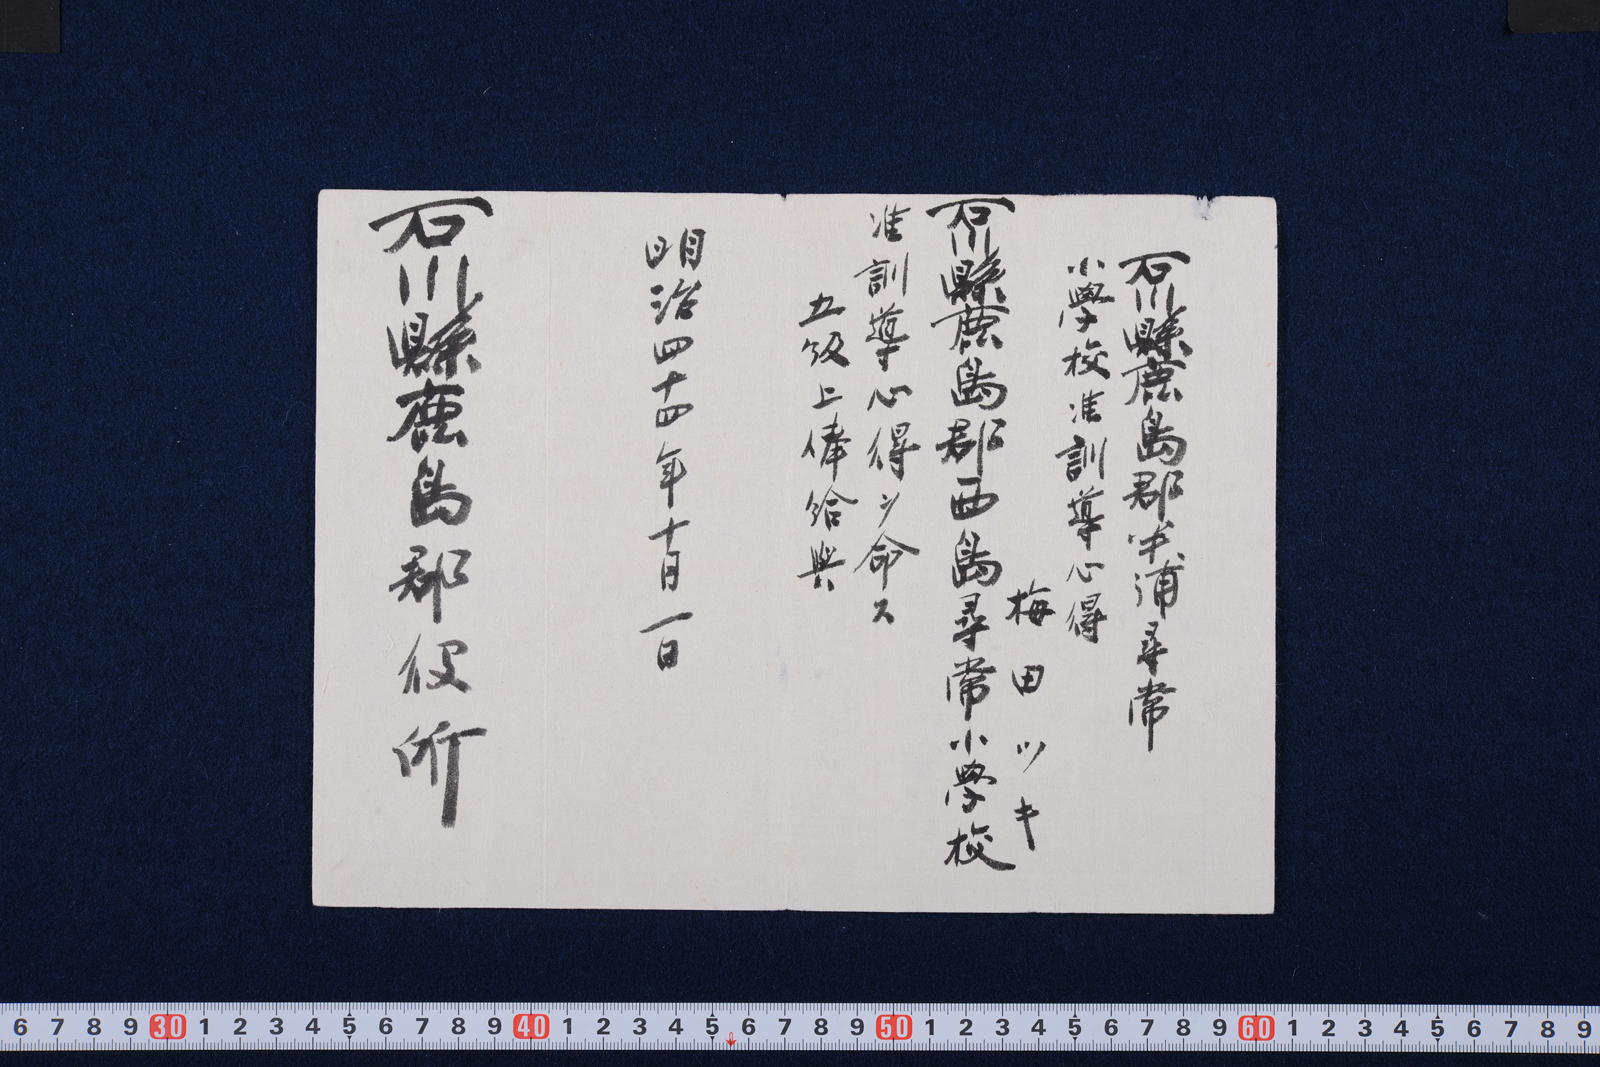 石川縣鹿島郡半浦尋常
小學校准訓導心得
梅田ツキ
石川縣鹿島郡西島尋常小學校
准訓導心得ヲ命ス
五級上俸給與
明治四十四年十月一日
石川縣鹿島郡役所
6 7 8 9 30 1 2 3 4 5 6 7 8 9 40 1 2 3 4 5 6 7 8 9 50 1 2 3 4 5 6 7 8 9 60 1 2 3 4 5 6 7 8 9